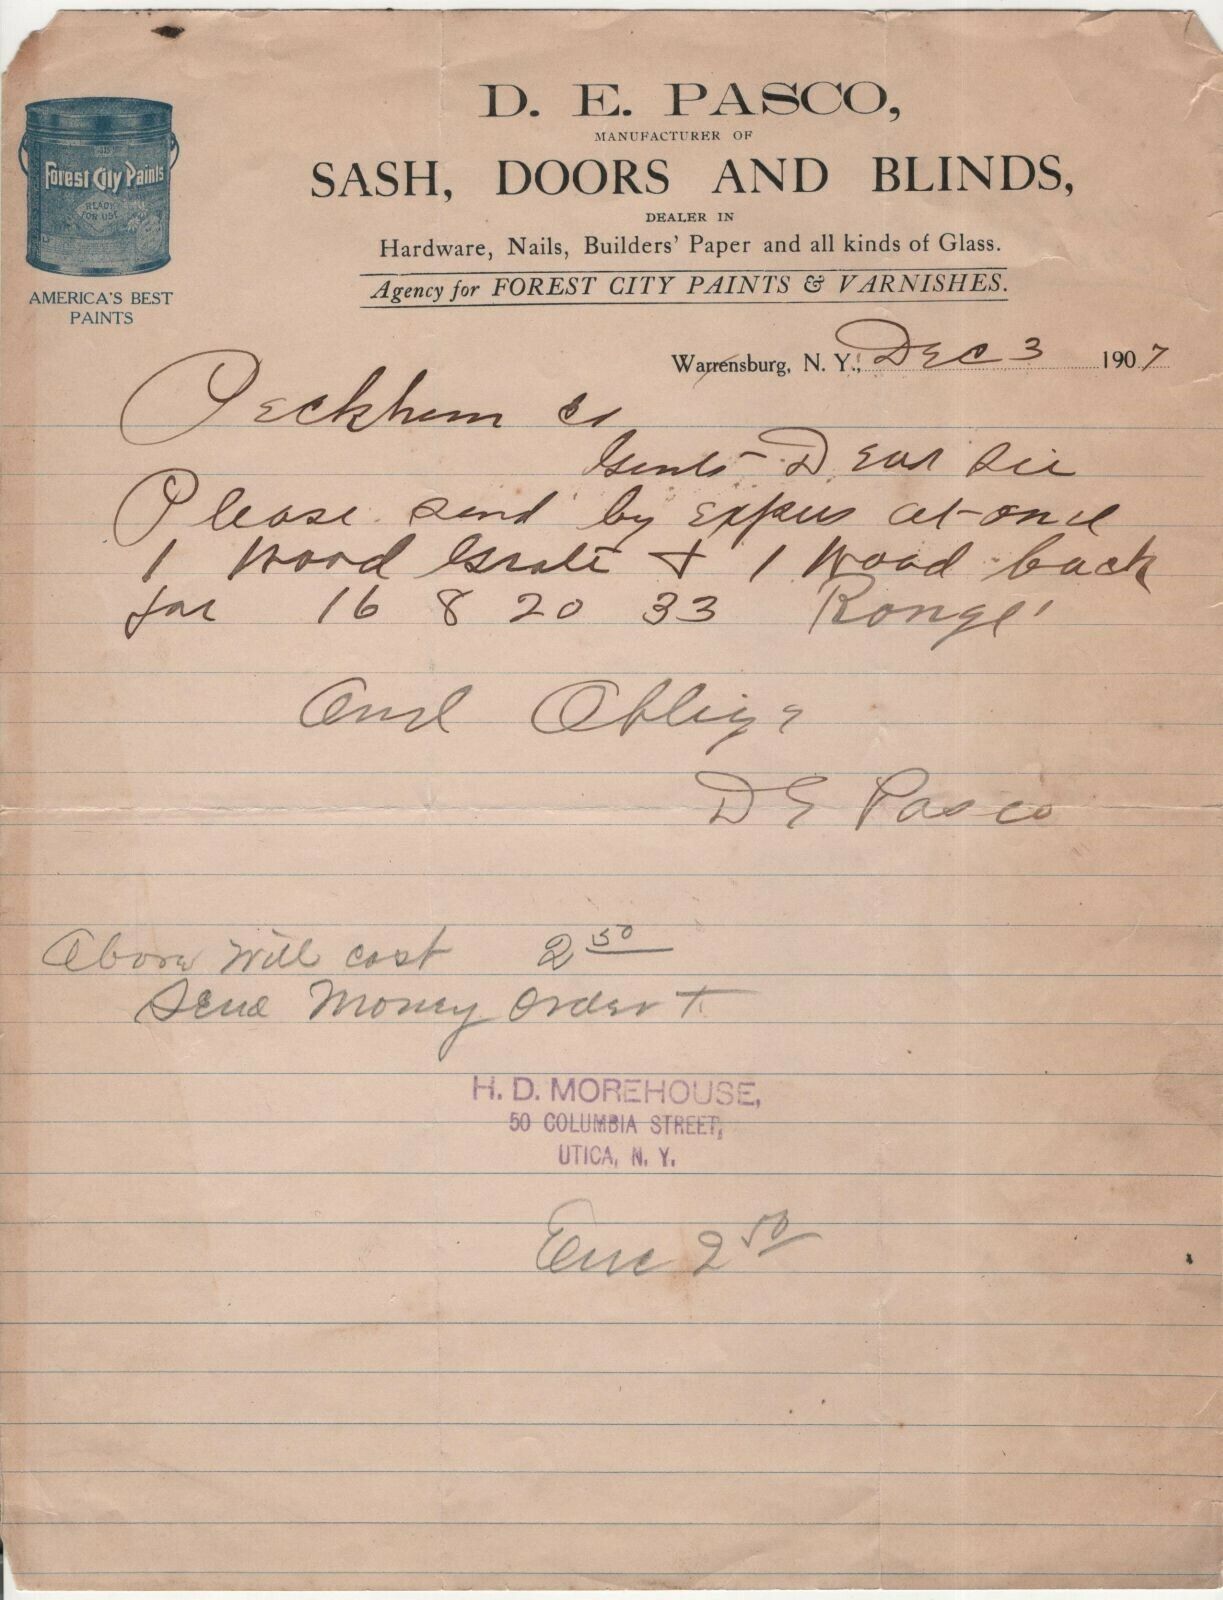 D. E. PASCO,
MANUFACTURER OF
SASH, DOORS AND BLINDS,
DEALER IN
Hardware, Nails, Builders' Paper and all kinds of Glass.
Agency for FOREST CITY PAINTS & VARNISHES.
Forest City Paints
READY
FOR USE
AMERICA'S BEST
PAINTS
Warrensburg, N. Y., Dec 3 1907
Peckham Co
Gents - Dear Sir
Please send by Express at once
1 Wood Grate + 1 Wood back
for 16 8 20 33 Range
And Oblige
D E Pasco
Above Will cost 2 50
Send Money Order +
H. D. MOREHOUSE,
50 COLUMBIA STREET,
UTICA, N. Y.
Enc 2 50